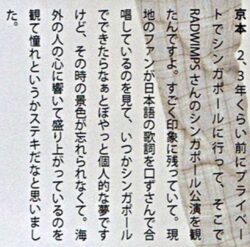 京本 2、3年くらい前にプライベ
ートでシンガポールに行って、そこで
RADWIMPSさんのシンガポール公演を観
たんですよ。すごく印象に残っていて。現
地のファンが日本語の歌詞を口ずさんで合
唱しているのを見て、いつかシンガポール
でできたらなぁとぼやっと個人的な夢です
けど、その時の景色が忘れられなくて。海
外の人の心に響いて盛り上がっているのを
観て憧れというかステキだなと思いまし
た。